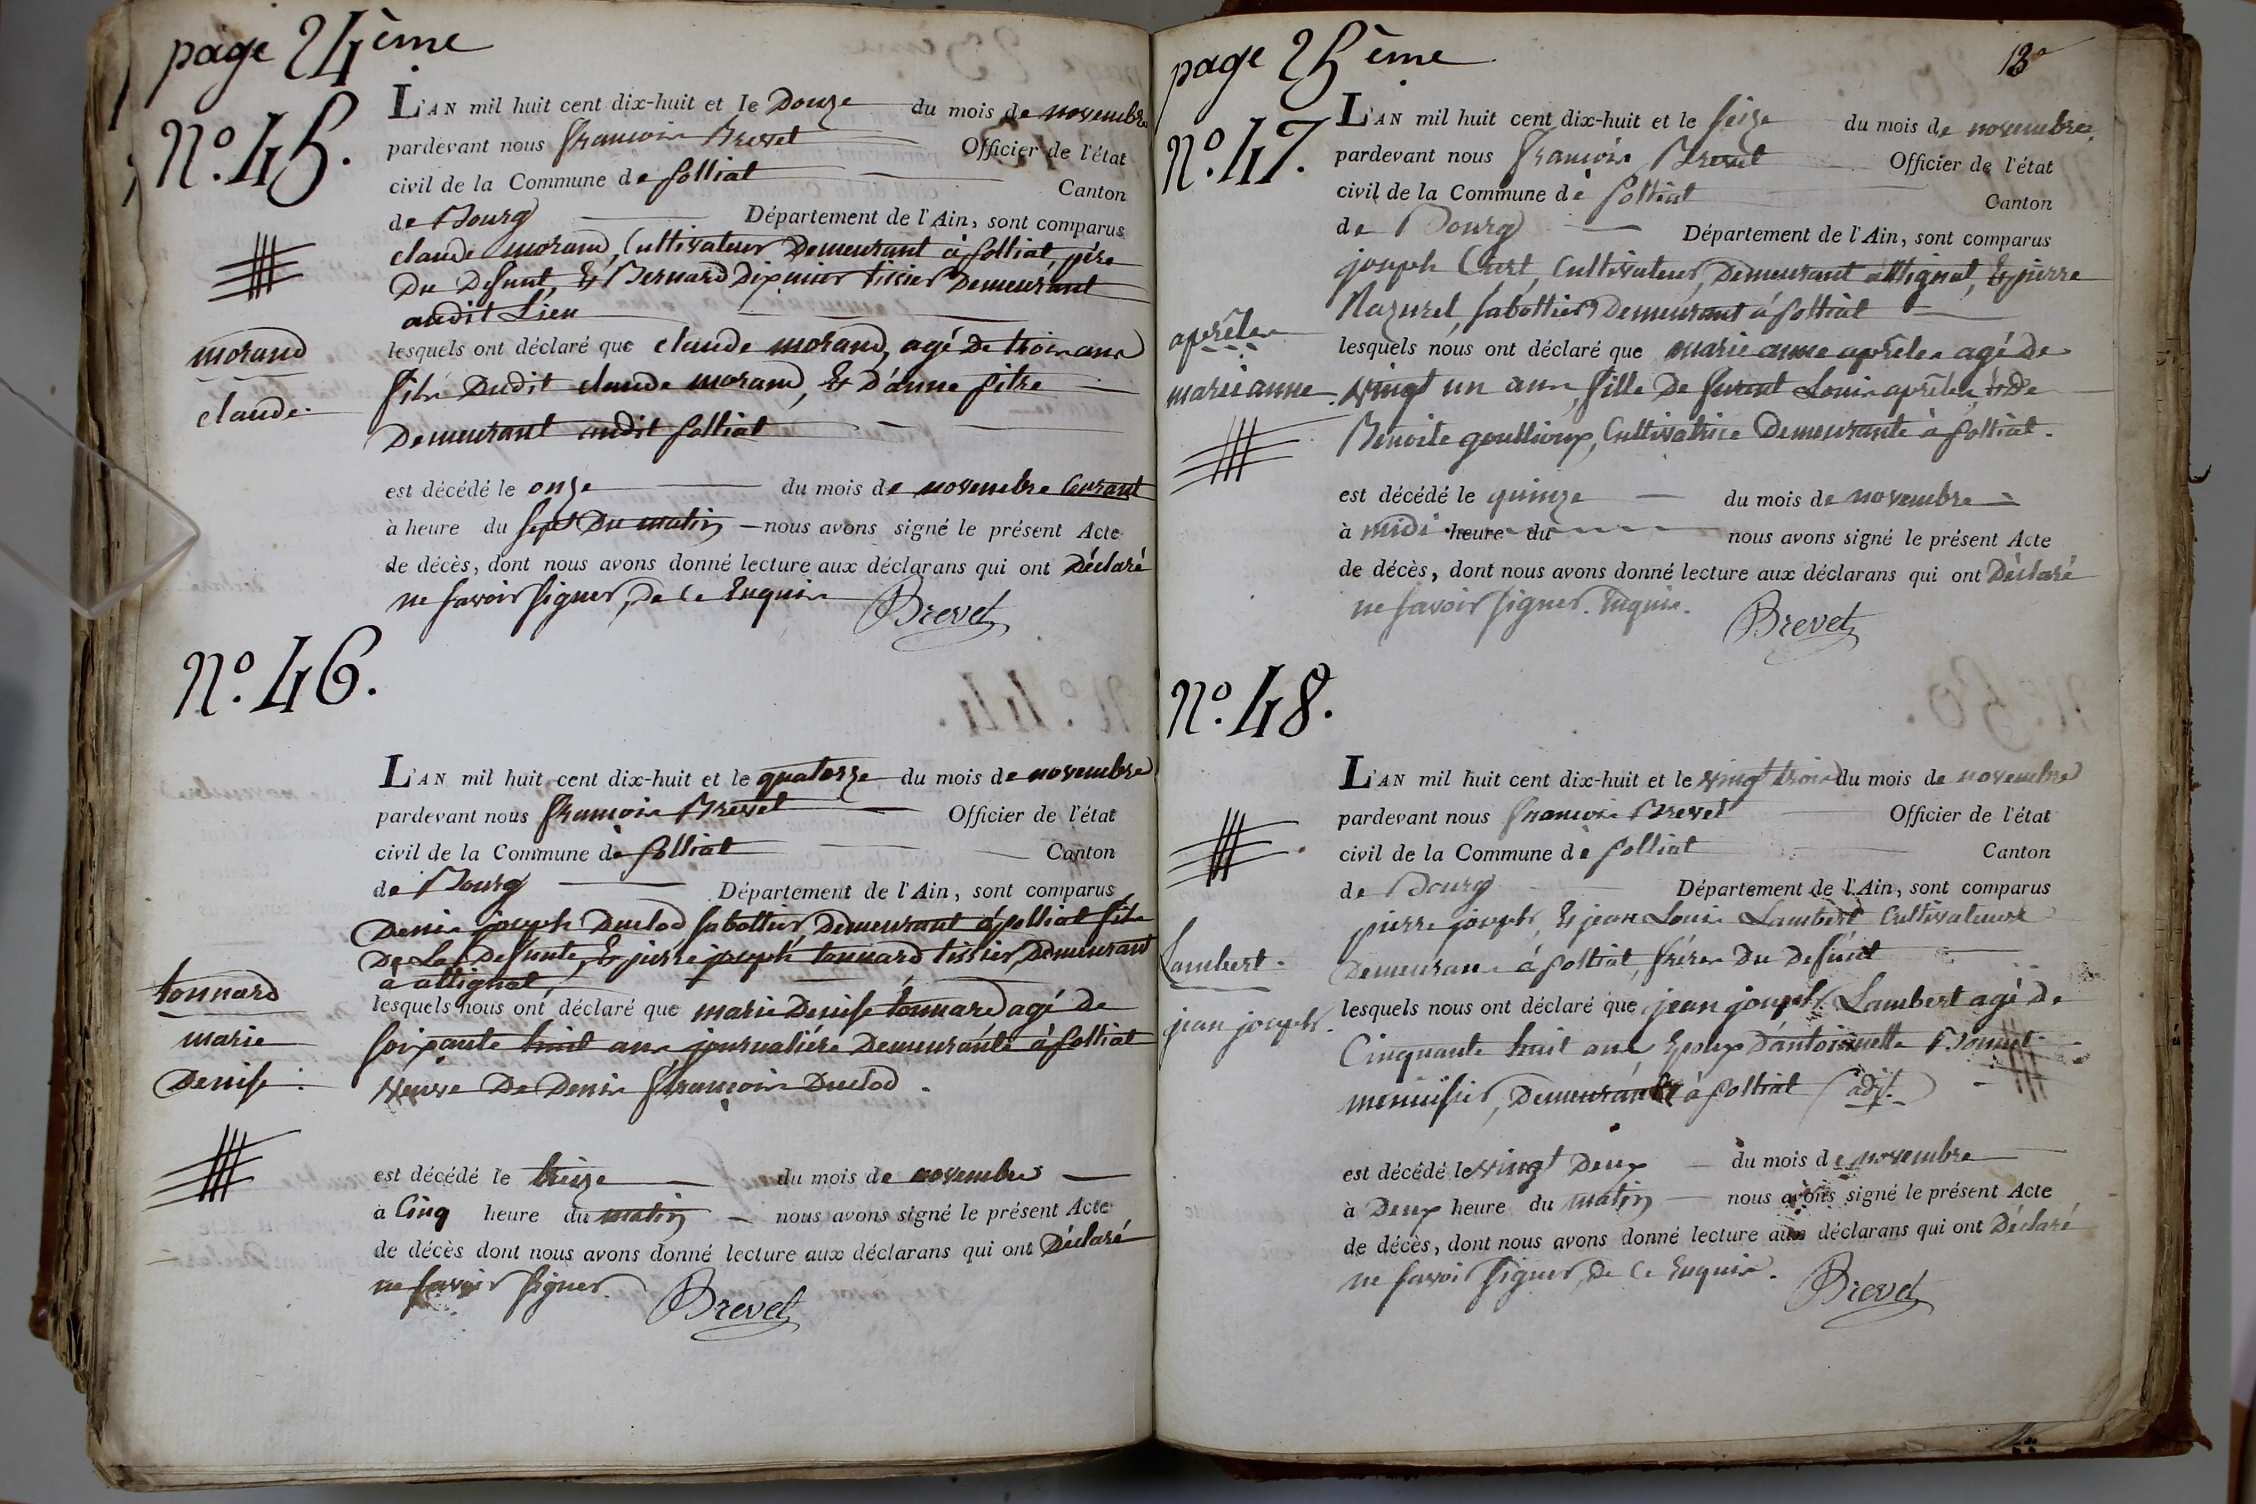 page 24ème
N°. 45.
L'AN mil huit cent dix-huit et le Douze du mois de novembre
pardevant nous françois Brevet Officier de l'état
civil de la Commune de polliat Canton
de Bourg Département de l'Ain, sont comparus
claude morand, Cultivateur Demeurant à polliat, père
Du Defunt, & Bernard Dixmier tissier Demeurant
audit Lieu
morand
claude.
lesquels ont déclaré que claude morand, agé De trois ans
fils Dudit claude morand, & D'anne pitre
Demeurant audit polliat
est décédé le onze du mois de novembre Courant
à heure du sept Du matin nous avons signé le présent Acte
de décès, dont nous avons donné lecture aux déclarans qui ont Déclaré
ne savoir signer, De ce Enquis
Brevet
N°. 46.
L'AN mil huit cent dix-huit et le quatorze du mois de novembre
pardevant nous françois Brevet Officier de l'état
civil de la Commune de polliat Canton
de Bourg Département de l'Ain, sont comparus
Denis joseph Duclod sabottier, Demeurant à polliat fils
De La Defunte, & pierre joseph tonnard tissier, Demeurant
à attignat
tonnard
marie
Denise.
lesquels nous ont déclaré que marie Denise tonnard agé de
soixante huit ans journalière Demeurante à polliat
veuve De Denis françois Duclod.
est décédé le treize du mois de novembre
à Cinq heure du matin nous avons signé le présent Acte
de décès dont nous avons donné lecture aux déclarans qui ont Déclaré
ne savoir signer.
Brevet
page 25ème
13e
N°. 47.
L'AN mil huit cent dix-huit et le seize du mois de novembre
pardevant nous françois Brevet Officier de l'état
civil de la Commune de polliat Canton
de Bourg Département de l'Ain, sont comparus
joseph Curt, Cultivateur, Demeurant attignat, & pierre
Nazurel, sabottier Demeurant à polliat
aprêles
marie anne.
lesquels nous ont déclaré que marie anne aprêles agé de
vingt un ans, fille De furent Louis aprêles & De
Benoite goullioux, Cultivatrice Demeurante à polliat.
est décédé le quinze du mois de novembre
à midi heure du nous avons signé le présent Acte
de décès, dont nous avons donné lecture aux déclarans qui ont Déclaré
ne savoir signer. Enquis.
Brevet
N°. 48.
L'AN mil huit cent dix-huit et le vingt trois du mois de novembre
pardevant nous françois Brevet Officier de l'état
civil de la Commune de polliat Canton
de Bourg Département de l'Ain, sont comparus
pierre joseph, & jean Louis Lambert Cultivateurs
Demeurans à polliat, frères Du Defunt
Lambert.
jean joseph.
lesquels nous ont déclaré que jean joseph Lambert agé de
Cinquante huit ans Epoux D'antoinette Bonnet
menuisier, Demeurant à polliat (adj.)
est décédé le vingt Deux du mois de novembre
à Deux heure du matin nous avons signé le présent Acte
de décès, dont nous avons donné lecture aux déclarans qui ont Déclaré
ne savoir signer, De ce Enquis.
Brevet